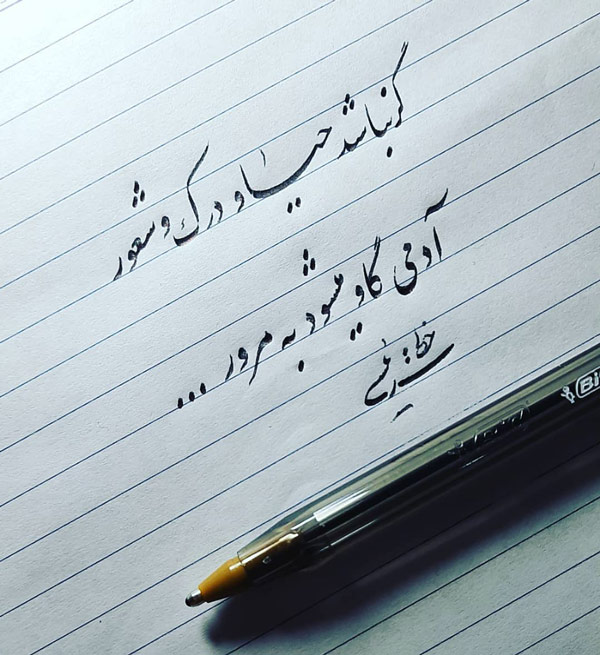 گر نباشد حیا و درک و شعور
آدمی گاو میشود به مرور ...
خط:
Bi